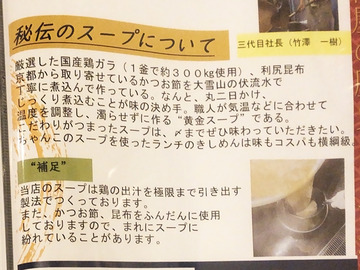 秘伝のスープについて
三代目社長（竹澤　一樹）
厳選した国産鶏ガラ（１釜で約３００㎏使用）、利尻昆布
京都から取り寄せているかつお節を大雪山の伏流水で
丁寧に煮込んで作っている。なんと、丸二日かけ、
じっくり煮込むことが味の決め手。職人が気温などに合わせて
温度を調整し、濁らせずに作る“黄金スープ”である。
こだわりがつまったスープは、〆までぜひ味わっていただきたい。
ちゃんこのスープを使ったランチのきしめんは味もコスパも横綱級。
“補足”
当店のスープは鶏の出汁を極限まで引き出す
製法でつくっております。
また、かつお節、昆布をふんだんに使用
しておりますので、まれにスープに
紛れていることがあります。